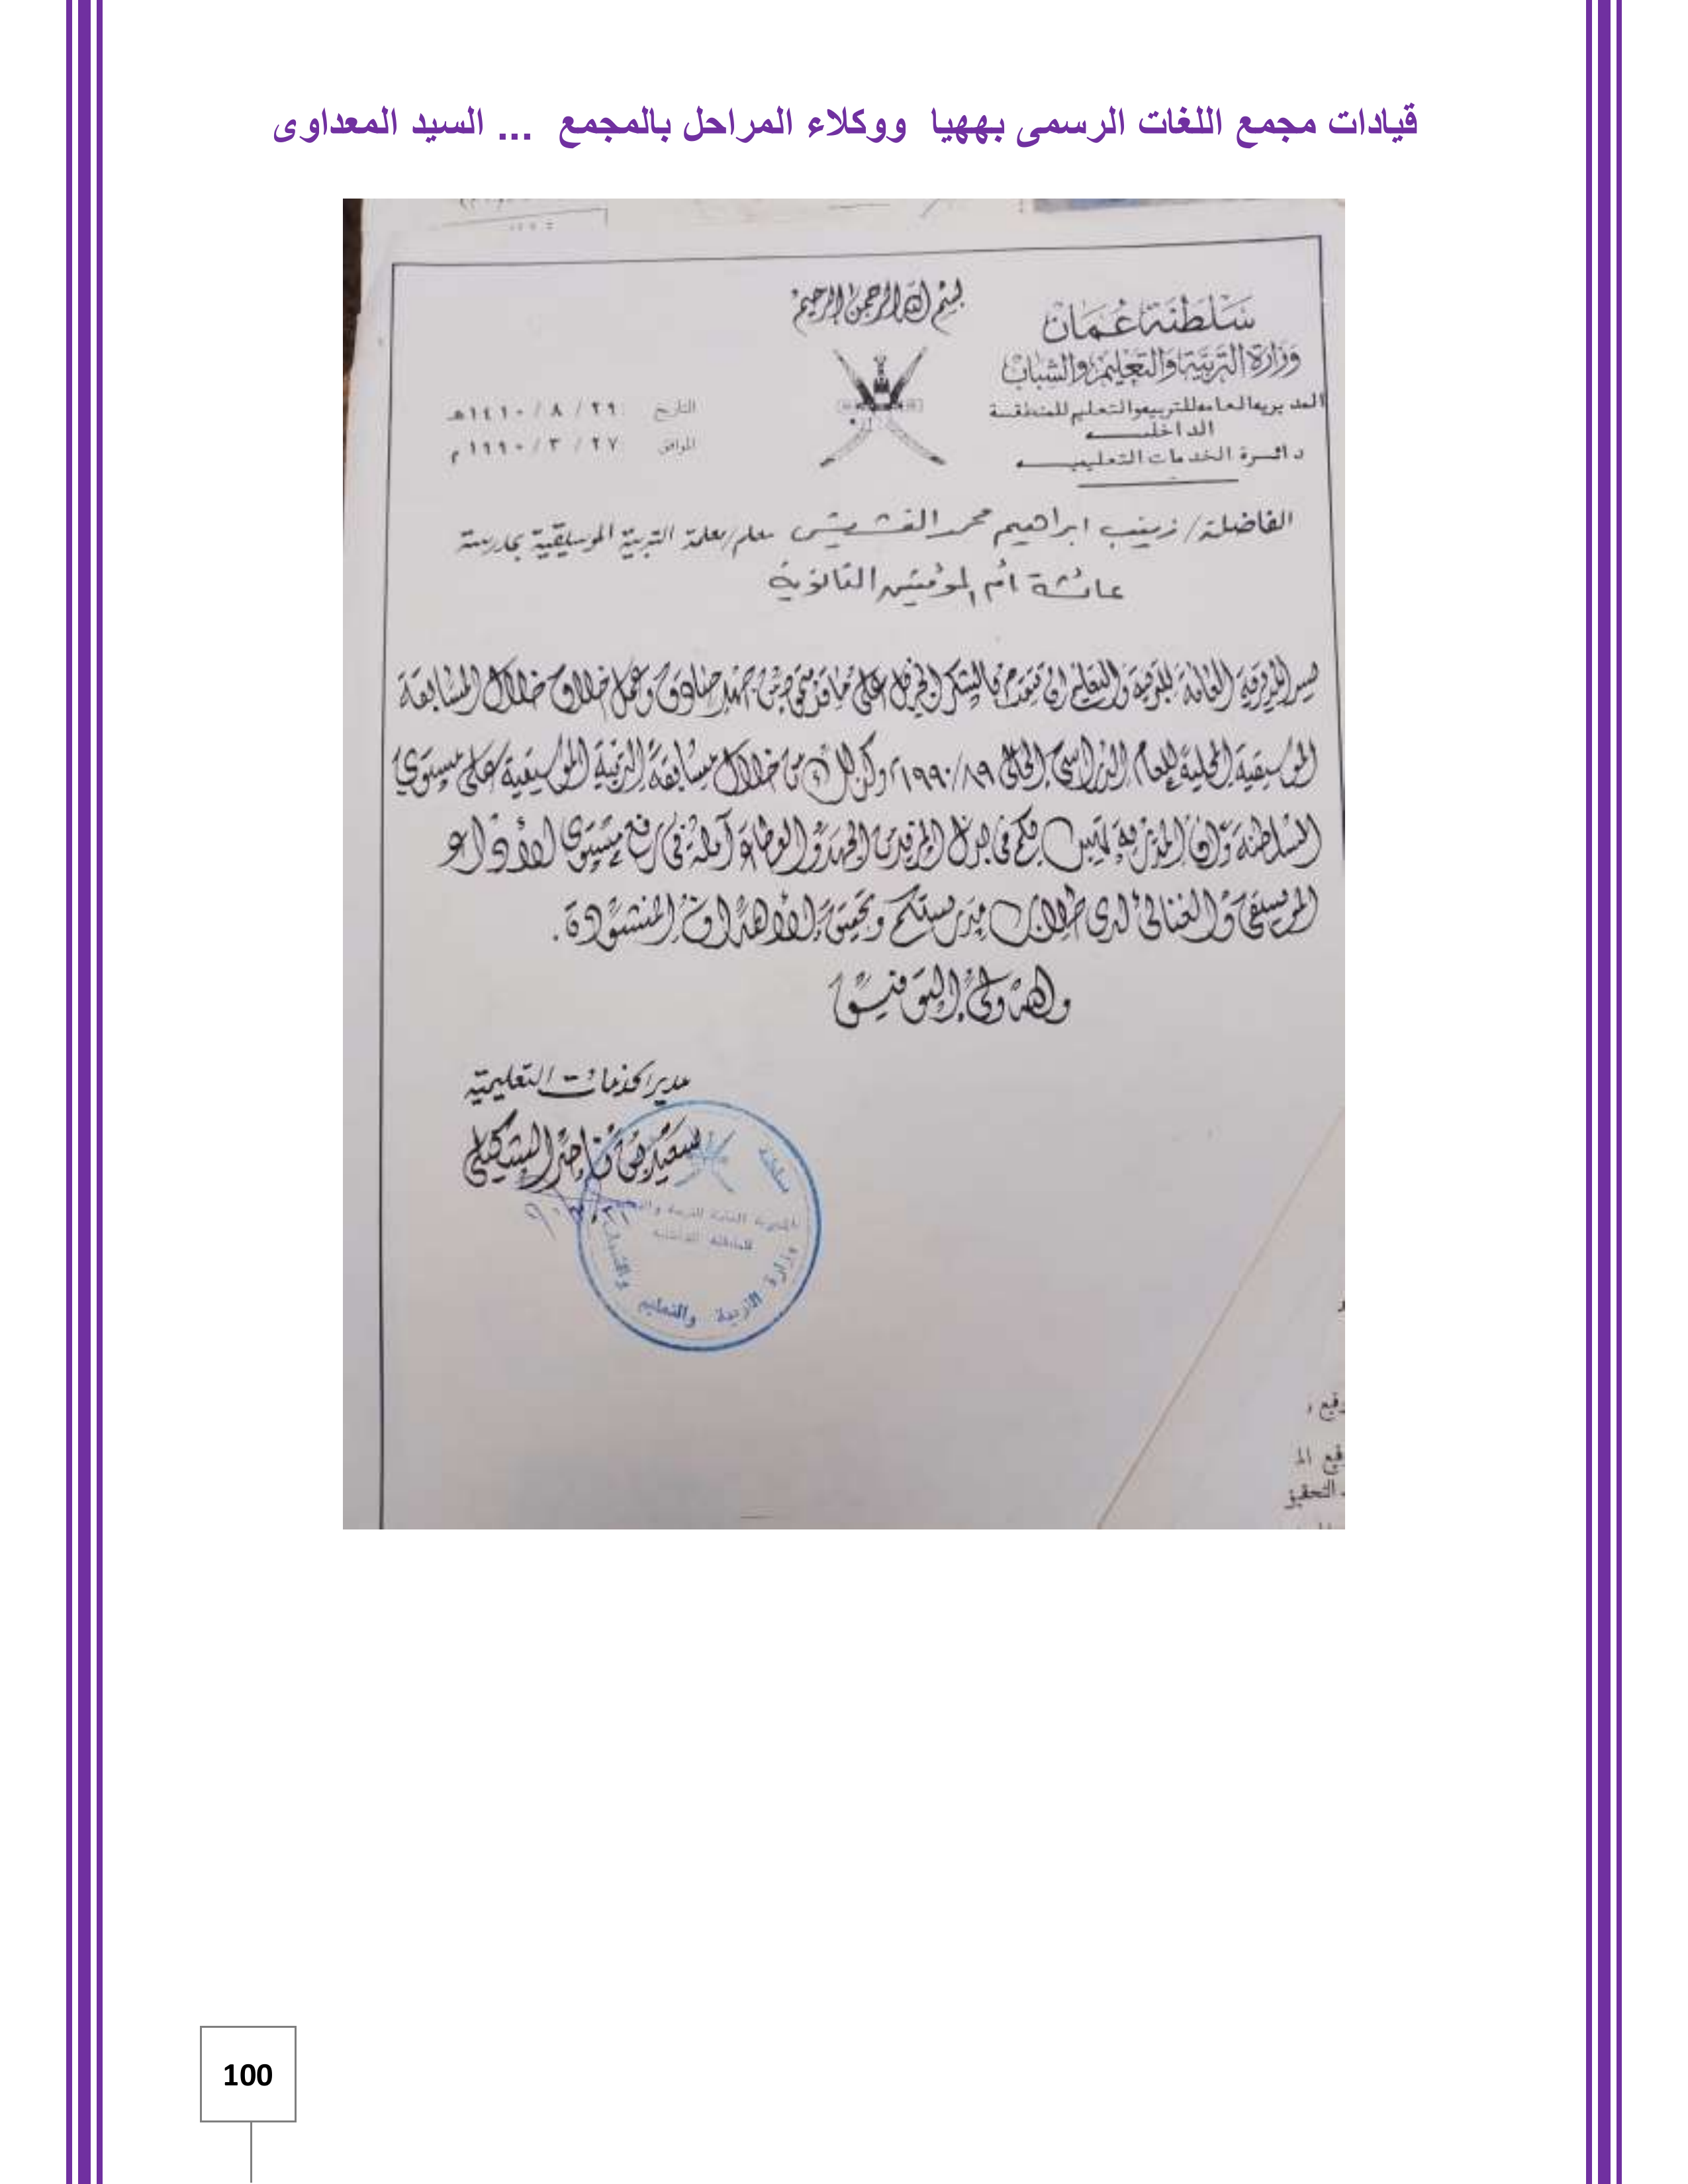 قيادات مجمع اللغات الرسمى بههيا ووكلاء المراحل بالمجمع ... السيد المعداوى
بسم الله الرحمن الرحيم
سلطنة عمان
وزارة التربية والتعليم والشباب
المديرية العامة للتربية والتعليم للمنطقة
الداخلية
دائرة الخدمات التعليمية
التاريخ ٢٩ / ٨ / ١٤١٠هـ
الموافق ٢٧ / ٣ / ١٩٩٠م
الفاضلة / زينب ابراهيم محمد معلم/معلمة التربية الموسيقية بمدرسة
عائشة أم المؤمنين الثانوية
يسر المديرية العامة للتربية والتعليم ان تتقدم بالشكر الجزيل على ما قدمتموه من جهد صادق وعمل خلاق خلال المسابقة
الموسيقية المحلية للعام الدراسى الحالى ٨٩/١٩٩٠م وكذلك من خلال مسابقة التربية الموسيقية على مستوى
السلطنة وان المديرية بكم فى بذل المزيد من الجهد والعطاء آملة فى رفع مستوى الأداء
الموسيقى والغنائى لدى طلاب مدرستكم وتحقيق الأهداف المنشودة.
والله ولى التوفيق
مدير الخدمات التعليمية
سعيد بن الشكيلى
سلطنة
المديرية العامة للتربية والتعليم
للمنطقة الداخلية
وزارة التربية والتعليم والشباب
وقيع
قيع الـ
التحقيق
100